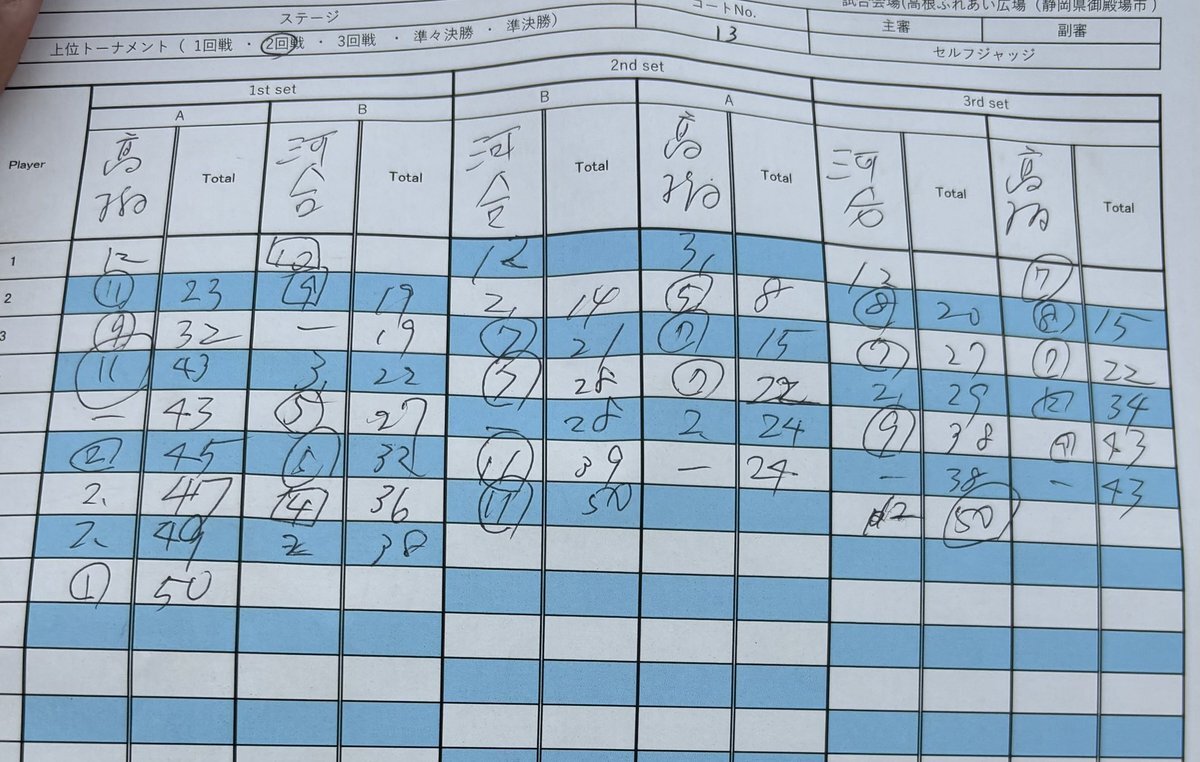 ステージ
コートNo.
試合会場(高根ふれあい広場（静岡県御殿場市）
上位トーナメント（ 1回戦 ・ 2回戦 ・ 3回戦 ・ 準々決勝 ・ 準決勝）
13
主審 副審
セルフジャッジ
1st set 2nd set 3rd set
A B B A
Player 高 Total 河合 Total 河合 Total 高 Total 河合 Total 高 Total
1 12 12 12 3 12 7
2 11 23 9 19 2 14 5 8 8 20 8 15
3 9 32 – 19 7 21 7 15 7 27 7 22
11 43 3 22 7 28 7 22 2 29 12 34
– 43 5 27 – 28 2 24 9 38 9 43
2 45 5 32 11 39 – 24 – 38 – 43
2 47 4 36 11 50 12 50
2 49 2 38
1 50